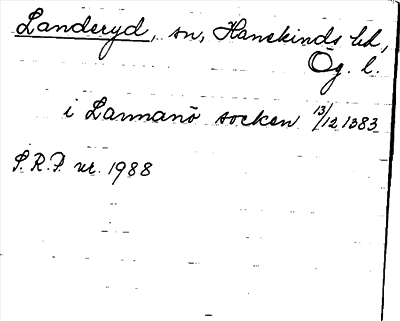 Landeryd, sn, Hanekinds hd,
Ög. l.
i Lannanö socken 13/12 1383
S.R.P. nr. 1988